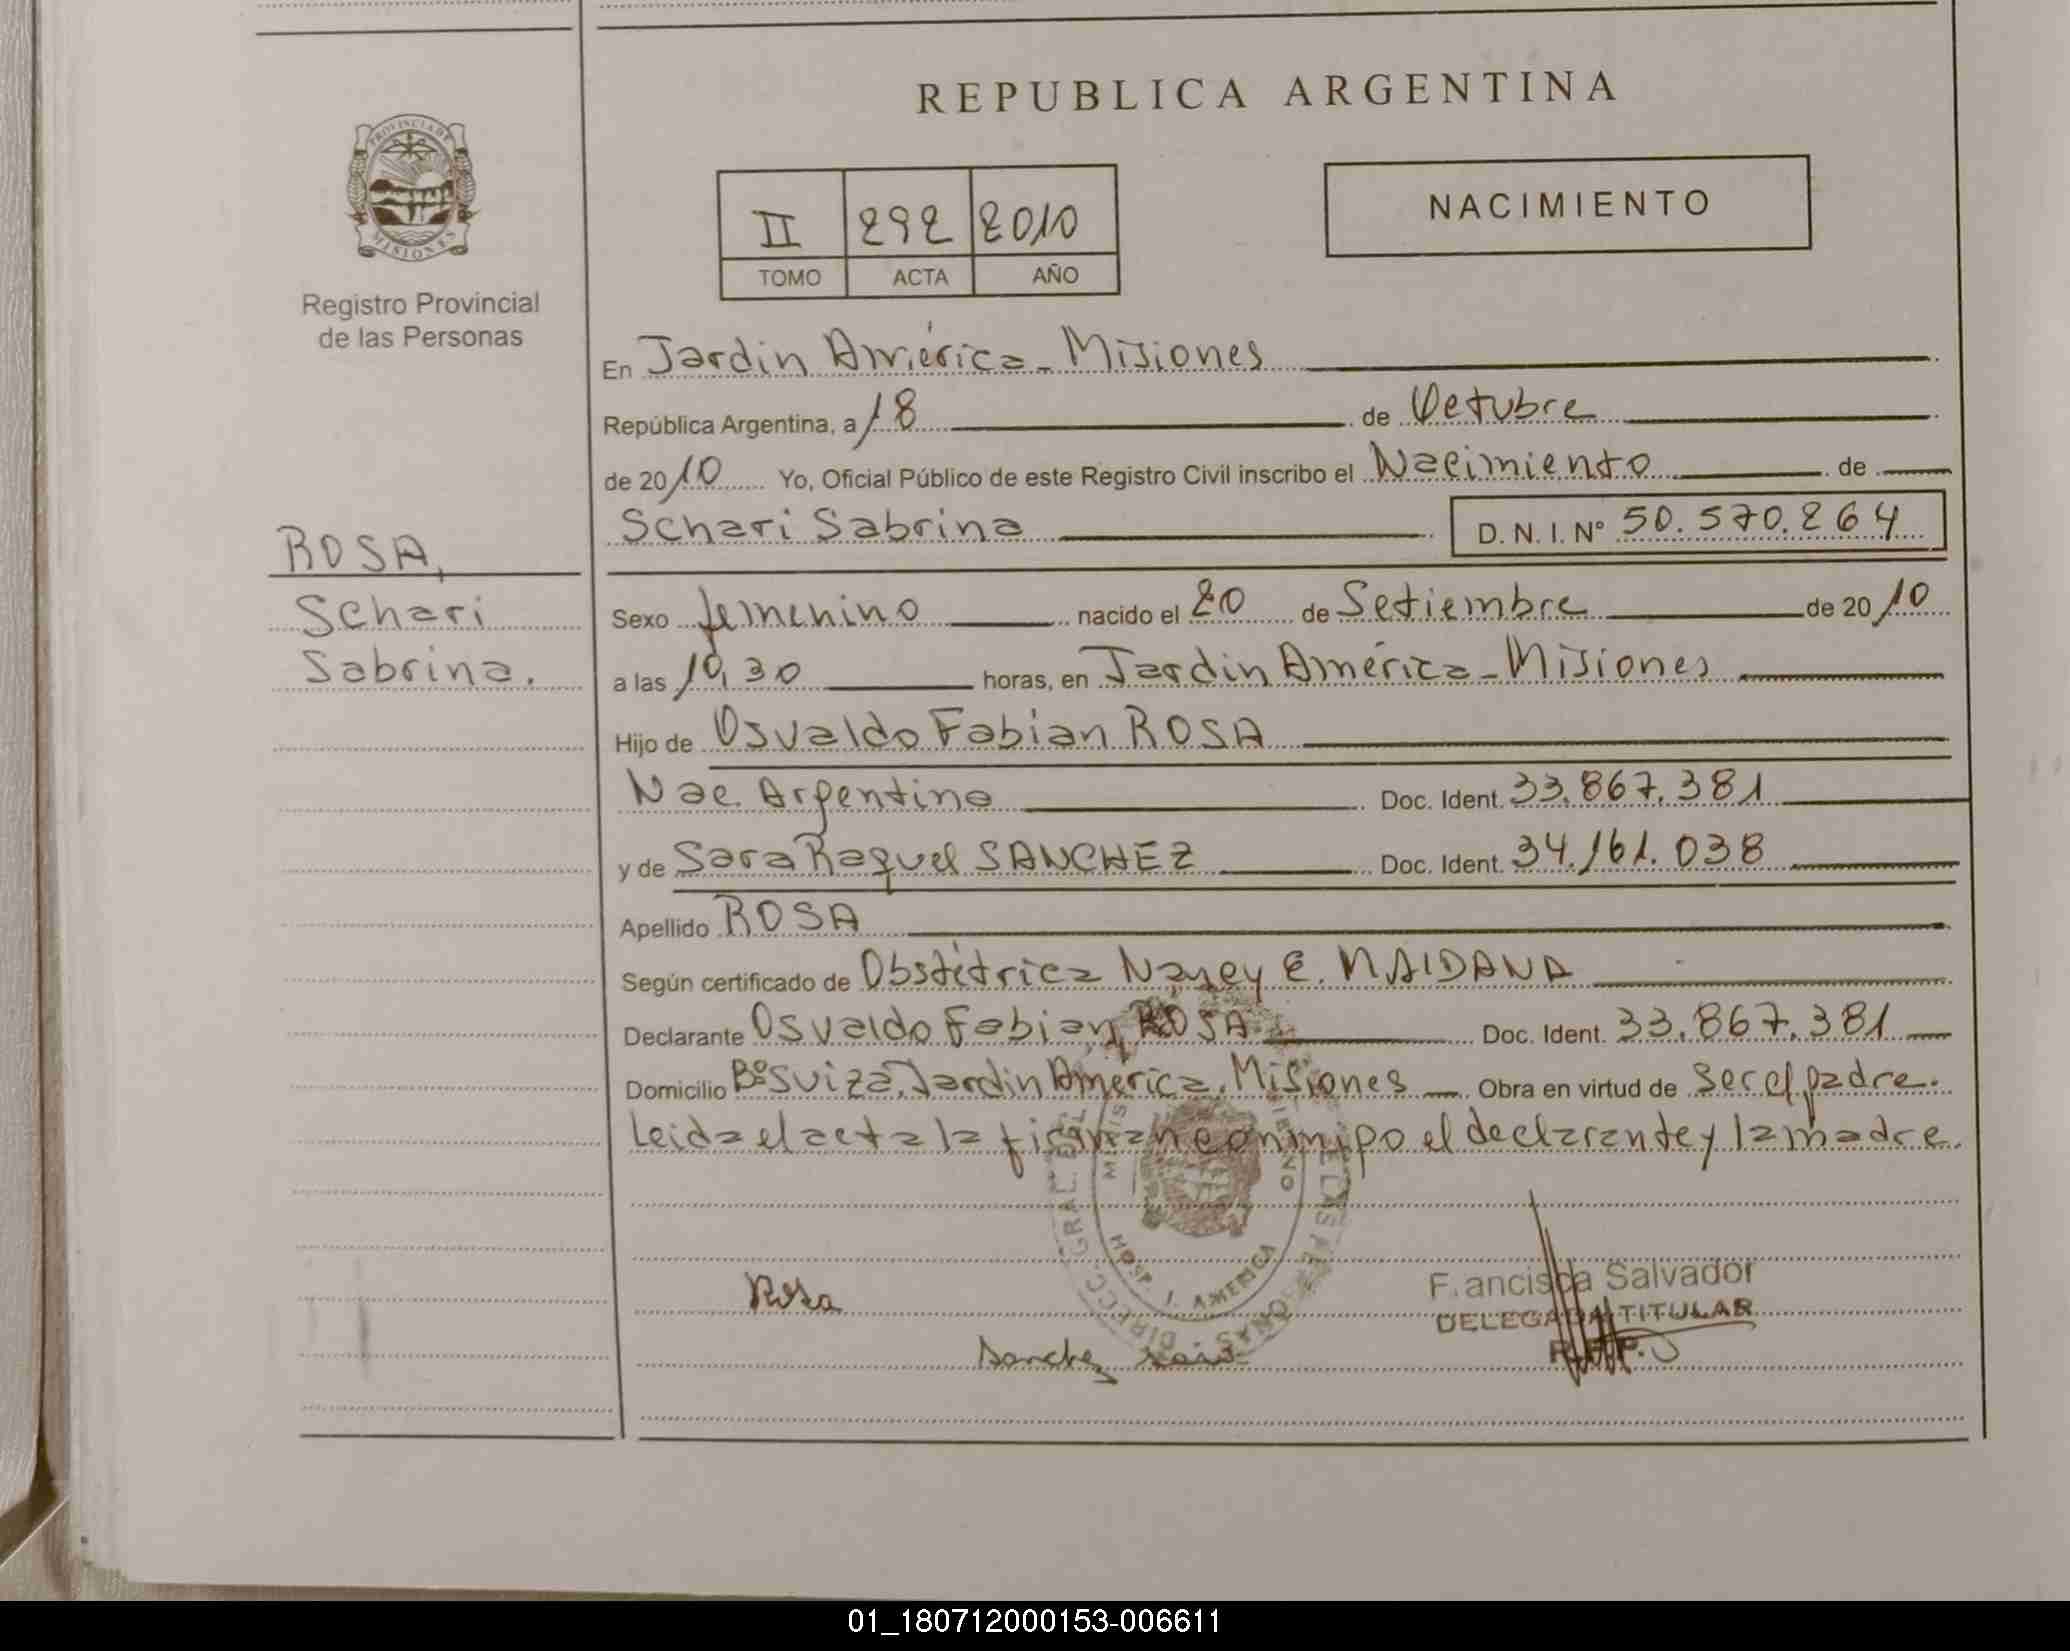 REPUBLICA ARGENTINA
PROVINCIA DE
MISIONES
Registro Provincial
de las Personas
II 292 2010
TOMO ACTA AÑO
NACIMIENTO
En Jardin América - Misiones
República Argentina, a 18 de Octubre
de 2010 Yo, Oficial Público de este Registro Civil inscribo el Nacimiento de
Schari Sabrina D. N. I. Nº 50.570.264
ROSA,
Schari
Sabrina.
Sexo femenino nacido el 20 de Setiembre de 2010
a las 10,30 horas, en Jardin América - Misiones
Hijo de Osvaldo Fabian ROSA
Nac. Argentina Doc. Ident. 33.867.381
y de Sara Raquel SANCHEZ Doc. Ident. 34.161.038
Apellido ROSA
Según certificado de Obstétrica Nancy E. MAIDANA
Declarante Osvaldo Fabian ROSA Doc. Ident. 33.867.381
Domicilio Bº Suiza, Jardin América, Misiones Obra en virtud de ser el padre.
Leida el acta la firman conmigo el declarante y la madre.
HOSP. J. AMERICA
Rosa
Sanchez
Francisca Salvador
DELEGADA TITULAR
R.P.P.
01_180712000153-006611